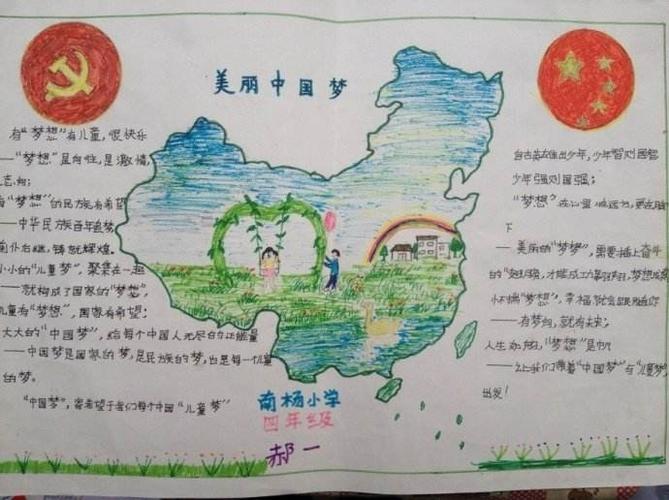 美丽中国梦
有“梦想”有儿童，很快乐
——“梦想”是向往，是激情，
志向；
有“梦想”的民族有希望
——中华民族百年追梦
前仆后继，铸就辉煌。
小小的“儿童梦”，聚集在一起
——就构成了国家的“梦想”，
儿童有“梦想”，国家有希望；
大大的“中国梦”，给每个中国人无尽的正能量
——中国梦是国家的梦，是民族的梦，也是每一个儿童
的梦。
“中国梦”，寄希望于我们每个中国“儿童梦”
自古英雄出少年，少年智则国智
少年强则国强；
“梦想”
下
——美丽的“梦”，需要插上奋斗
的“翅膀”，才能成功
怀揣“梦想”，幸福就会跟随你
——有梦想，就有未来；
人生“梦想”是
——让我们带着“中国梦”与“儿童梦”
出发！
南杨小学
四年级
郝一